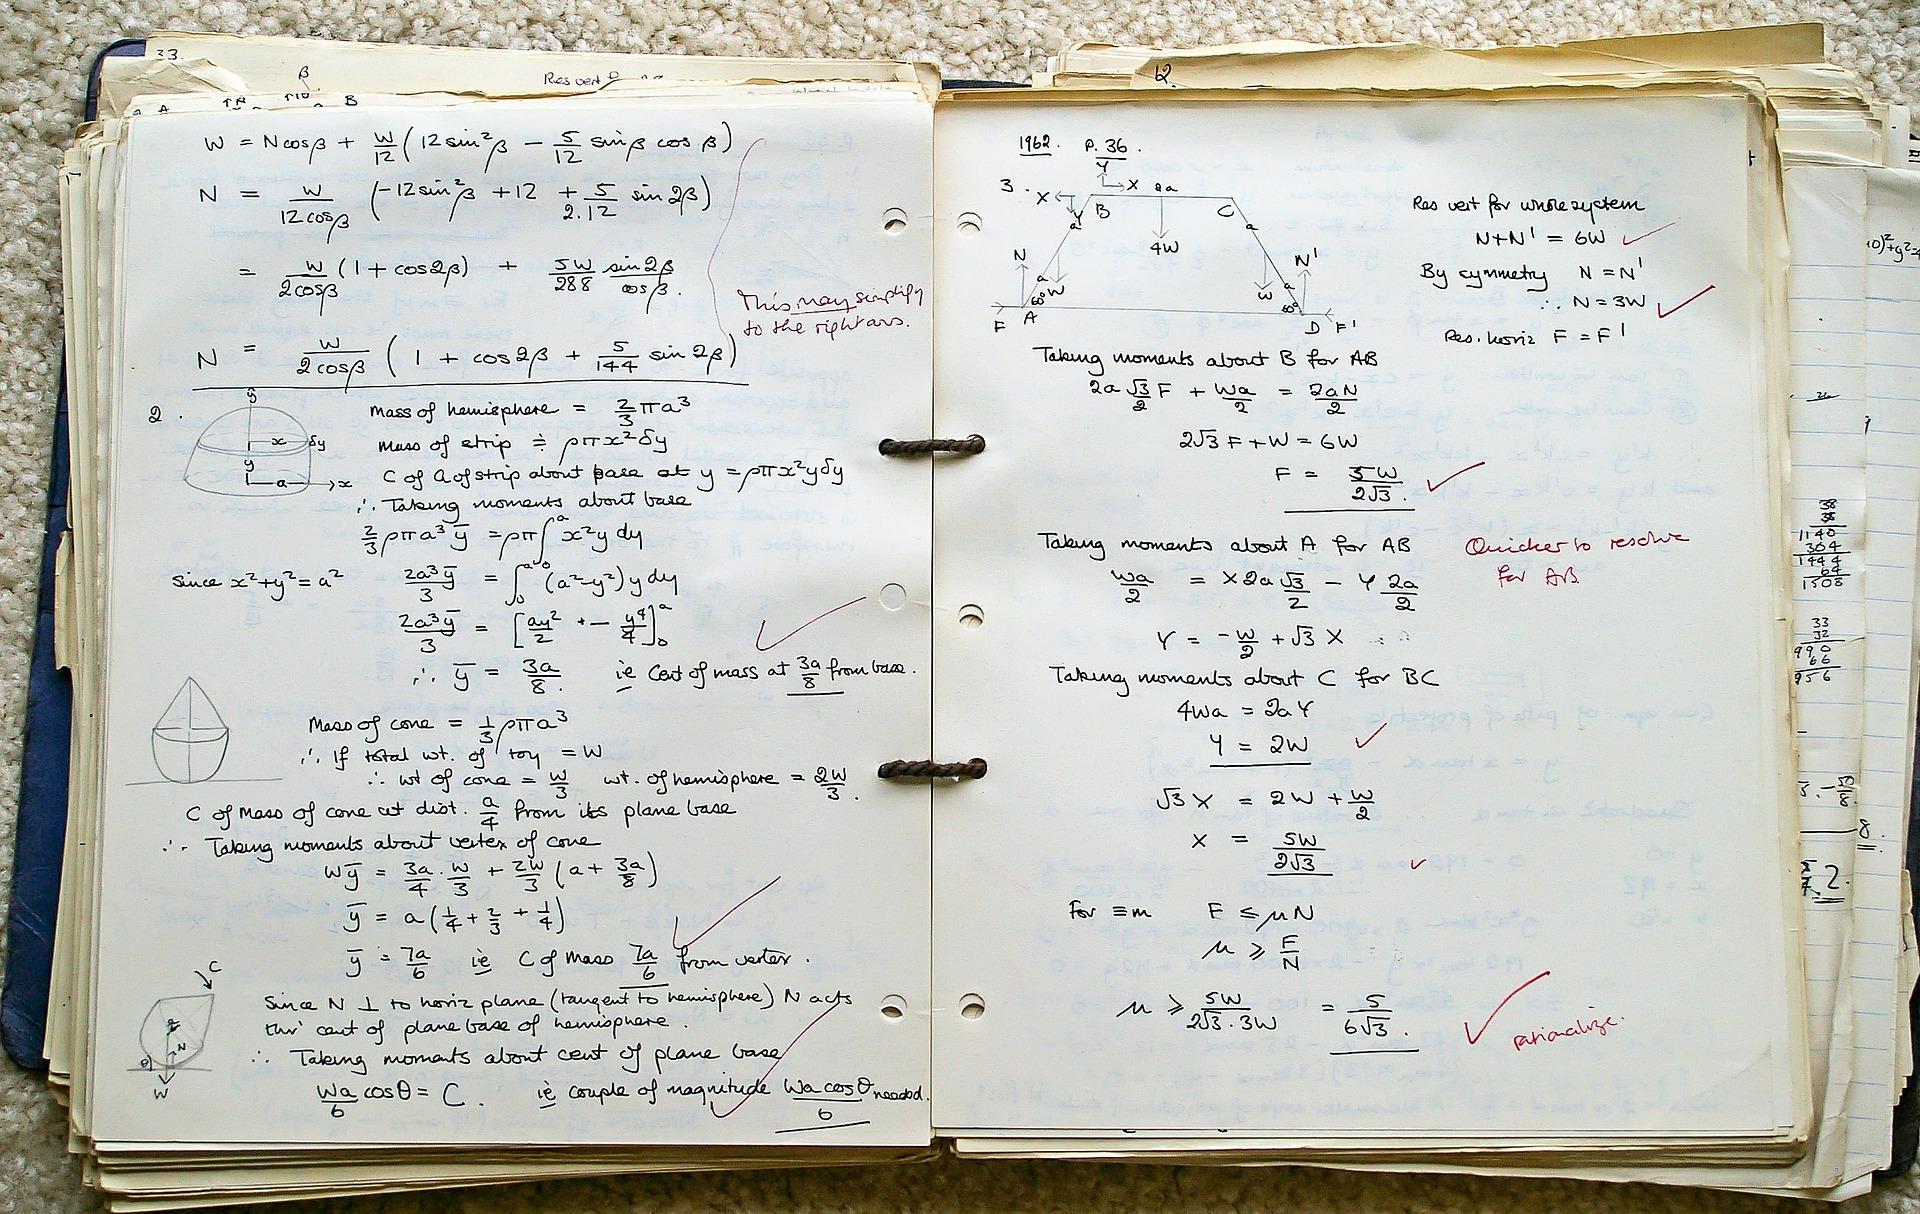 33.
β
Res vert
A
B
W = N cosβ + W/12 (12 sin²β − 5/12 sinβ cosβ)
N = W/12cosβ (−12 sin²β + 12 + 5/2.12 sin 2β)
= W/2cosβ (1 + cos2β) + 5W/288 sin2β/cosβ.
This may simplify
to the right ans.
N = W/2cosβ (1 + cos2β + 5/144 sin 2β)
2.
y
x δy
y
a x
Mass of hemisphere = 2/3 πa³
Mass of strip ≑ ρπx²δy
C of G of strip about base at y = ρπx²yδy
∴ Taking moments about base
2/3 ρπa³ȳ = ρπ∫ᵃx²y dy
since x²+y²=a² 2a³ȳ/3 = ∫₀ᵃ(a²−y²)y dy
2a³ȳ/3 = [ay²/2 − y⁴/4]₀ᵃ
∴ ȳ = 3a/8. ie Cent of mass at 3a/8 from base.
Mass of cone = 1/3 ρπa³
∴ If total wt. of toy = W
∴ wt of cone = W/3 wt. of hemisphere = 2W/3.
C of Mass of cone at dist. a/4 from its plane base
∴ Taking moments about vertex of cone
Wȳ = 3a/4 . W/3 + 2W/3 (a + 3a/8)
ȳ = a(1/4 + 2/3 + 1/4)
ȳ = 7a/6 ie C of Mass 7a/6 from vertex.
C
θ
N
W
Since N ⊥ to horiz plane (tangent to hemisphere) N acts
thr' cent of plane base of hemisphere.
∴ Taking moments about cent of plane base
Wa/6 cosθ = C. ie couple of magnitude Wa cosθ/6 needed.
12
1962. P. 36.
3.
Y
X X 2a
Y B C
a a
4W
N N'
a a
W W
60° 60°
F A D F'
Res vert for whole system
N+N' = 6W
By symmetry N = N'
∴ N = 3W
Res. horiz F = F'
Taking moments about B for AB
2a √3/2 F + Wa/2 = 2aN/2
2√3 F + W = 6W
F = 5W/2√3.
Taking moments about A for AB
Quicker to resolve
for AB
Wa/2 = X 2a √3/2 − Y 2a/2
Y = −W/2 + √3 X
Taking moments about C for BC
4Wa = 2aY
Y = 2W
√3 X = 2W + W/2
X = 5W/2√3
for ≡m F ≤ μN
μ ⩾ F/N
μ ⩾ 5W/2√3 . 3W = 5/6√3.
rationalize.
38
38
1140
304
1444
64
1508
33
32
990
66
956
8.
2.